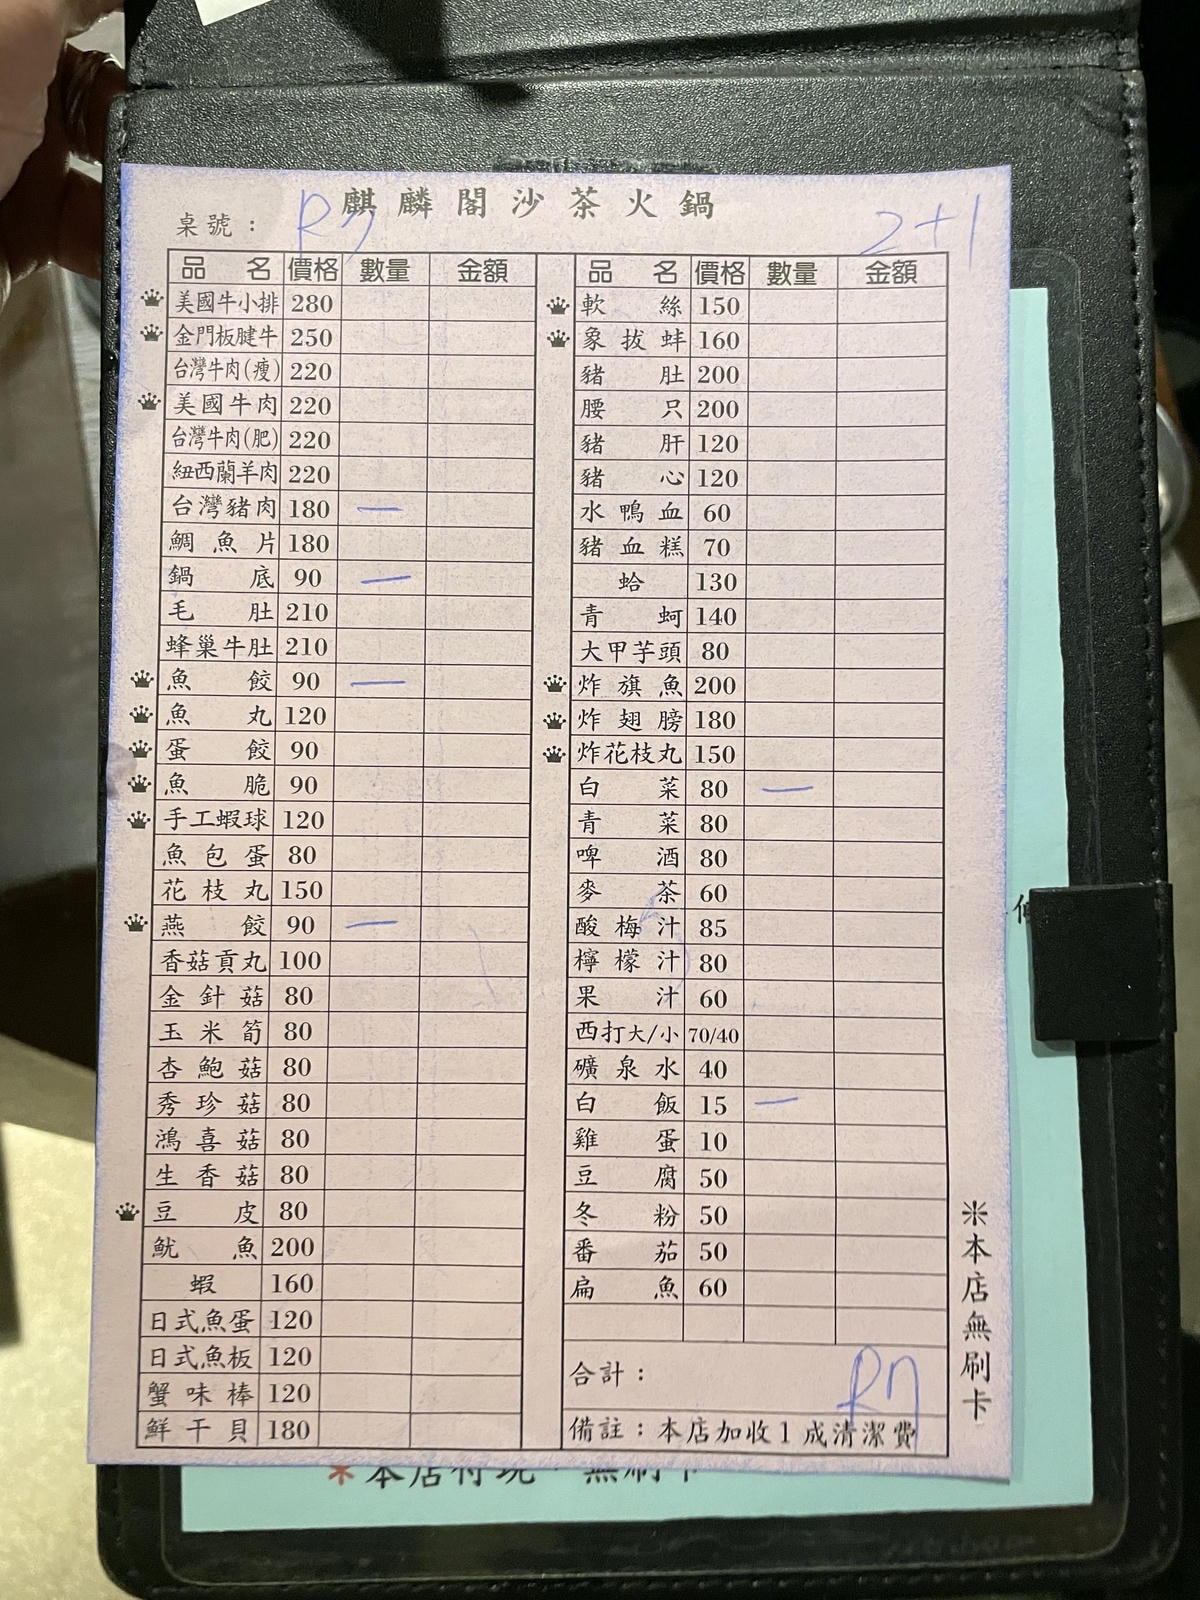 麒麟閣沙茶火鍋
桌號： R7 2+1
品名 價格 數量 金額
美國牛小排 280
金門板腱牛 250
台灣牛肉(瘦) 220
美國牛肉 220
台灣牛肉(肥) 220
紐西蘭羊肉 220
台灣豬肉 180 一
鯛魚片 180
鍋底 90 一
毛肚 210
蜂巢牛肚 210
魚餃 90 一
魚丸 120
蛋餃 90
魚脆 90
手工蝦球 120
魚包蛋 80
花枝丸 150
燕餃 90 一
香菇貢丸 100
金針菇 80
玉米筍 80
杏鮑菇 80
秀珍菇 80
鴻喜菇 80
生香菇 80
豆皮 80
魷魚 200
蝦 160
日式魚蛋 120
日式魚板 120
蟹味棒 120
鮮干貝 180
品名 價格 數量 金額
軟絲 150
象拔蚌 160
豬肚 200
腰只 200
豬肝 120
豬心 120
水鴨血 60
豬血糕 70
蛤 130
青蚵 140
大甲芋頭 80
炸旗魚 200
炸翅膀 180
炸花枝丸 150
白菜 80 一
青菜 80
啤酒 80
麥茶 60
酸梅汁 85
檸檬汁 80
果汁 60
西打大/小 70/40
礦泉水 40
白飯 15 一
雞蛋 10
豆腐 50
冬粉 50
番茄 50
扁魚 60
合計： R7
備註：本店加收1成清潔費
※本店無刷卡